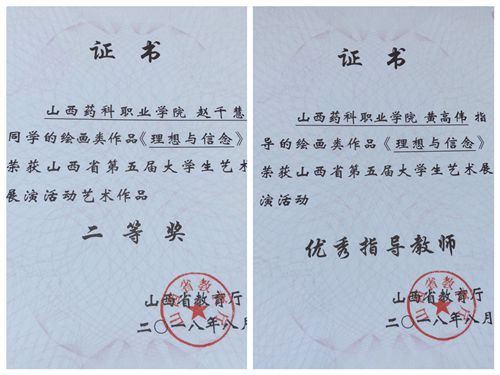 证书
山西药科职业学院 赵千慧
同学的绘画类作品《理想与信念》
荣获山西省第五届大学生艺术
展演活动艺术作品
二等奖
山西省教育厅
二〇一八年八月
证书
山西药科职业学院 黄高伟 指
导的绘画类作品《理想与信念》
荣获山西省第五届大学生艺术展
演活动
优秀指导教师
山西省教育厅
二〇一八年八月